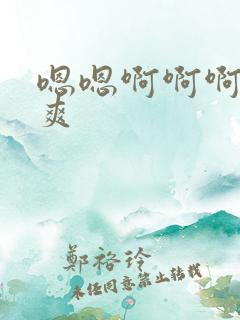 嗯嗯啊啊啊
爽
鄭裕玲
未经同意禁止转载